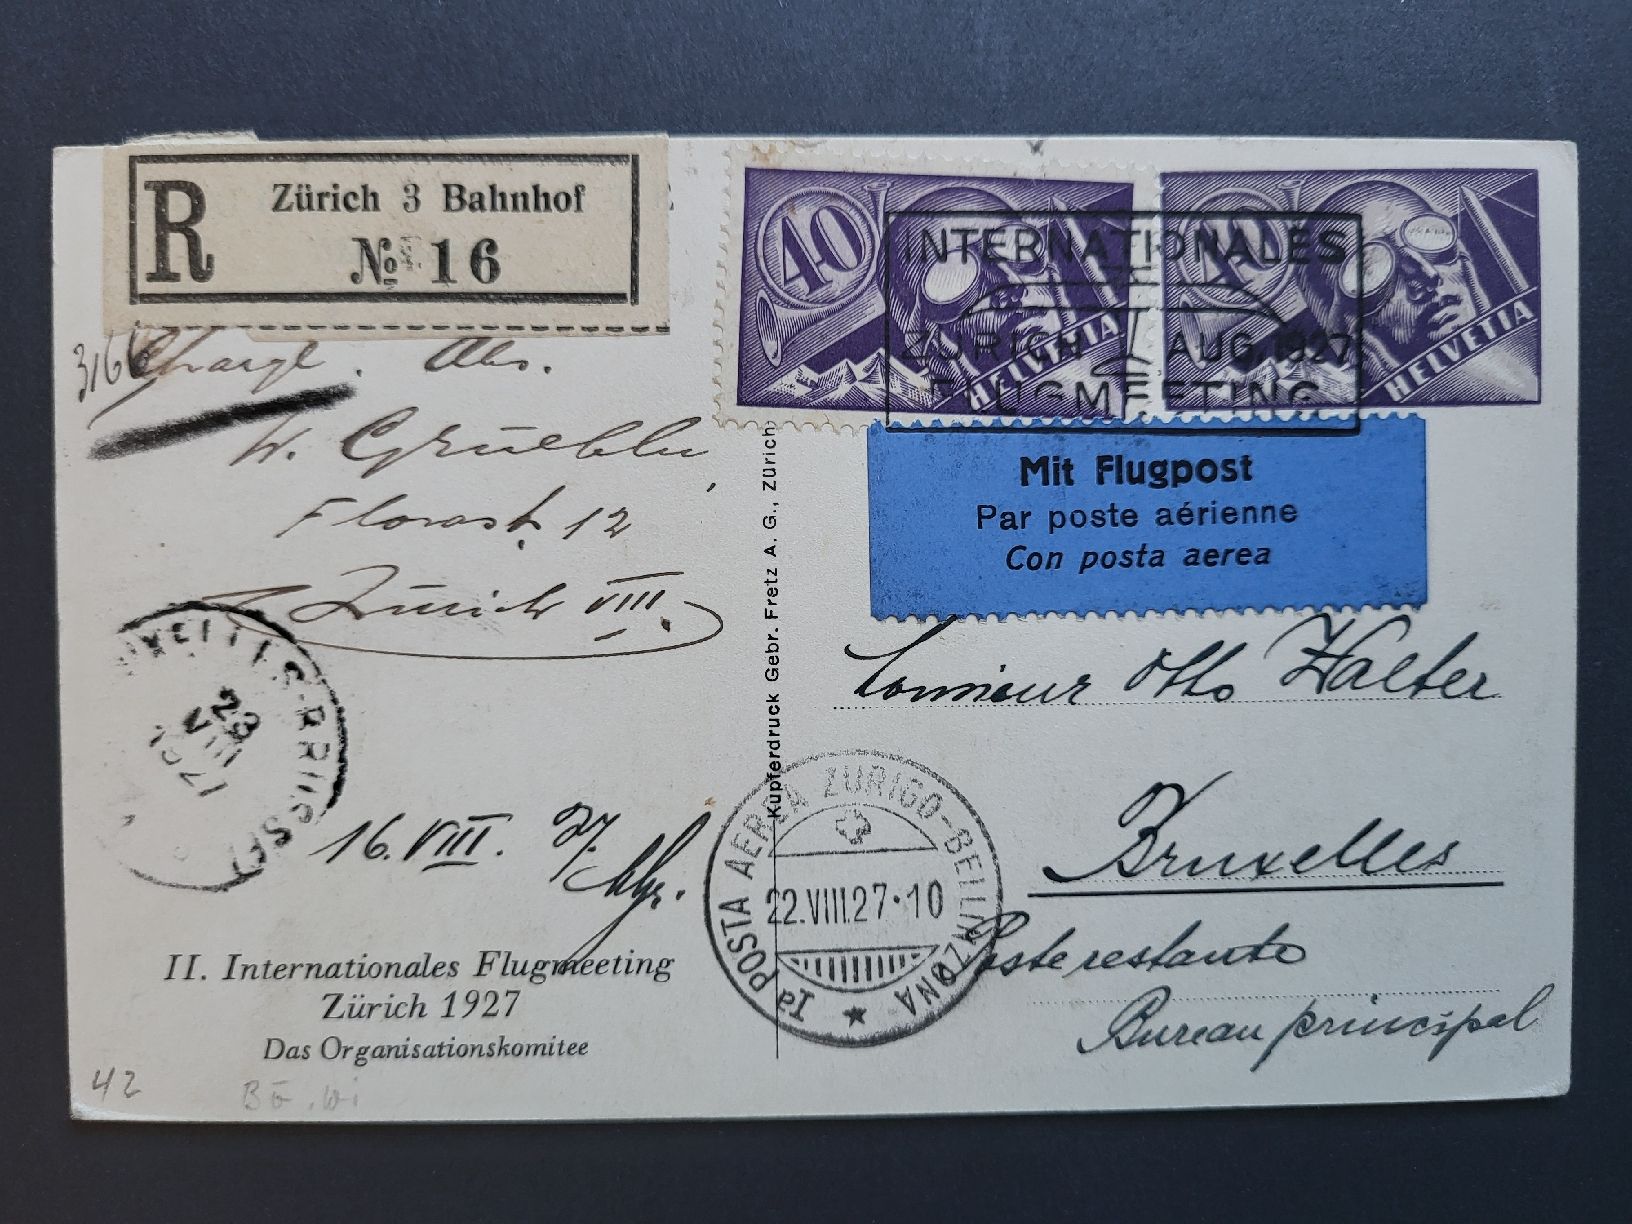 R Zürich 3 Bahnhof
№ 16
40
40
HELVETIA
HELVETIA
INTERNATIONALES
ZÜRICH AUG. 1927
FLUGMEETING
Mit Flugpost
Par poste aérienne
Con posta aerea
Chargé. Abs.
Florastr. 12
Zürich VIII.
Kupferdruck Gebr. Fretz A. G., Zürich
Monsieur Otto Walter
Bruxelles
Poste restante
Bureau principal
23
VIII
16. VIII. 27.
Ia POSTA AEREA ZURIGO-BELLINZONA
22.VIII.27·10
II. Internationales Flugmeeting
Zürich 1927
Das Organisationskomitee
42